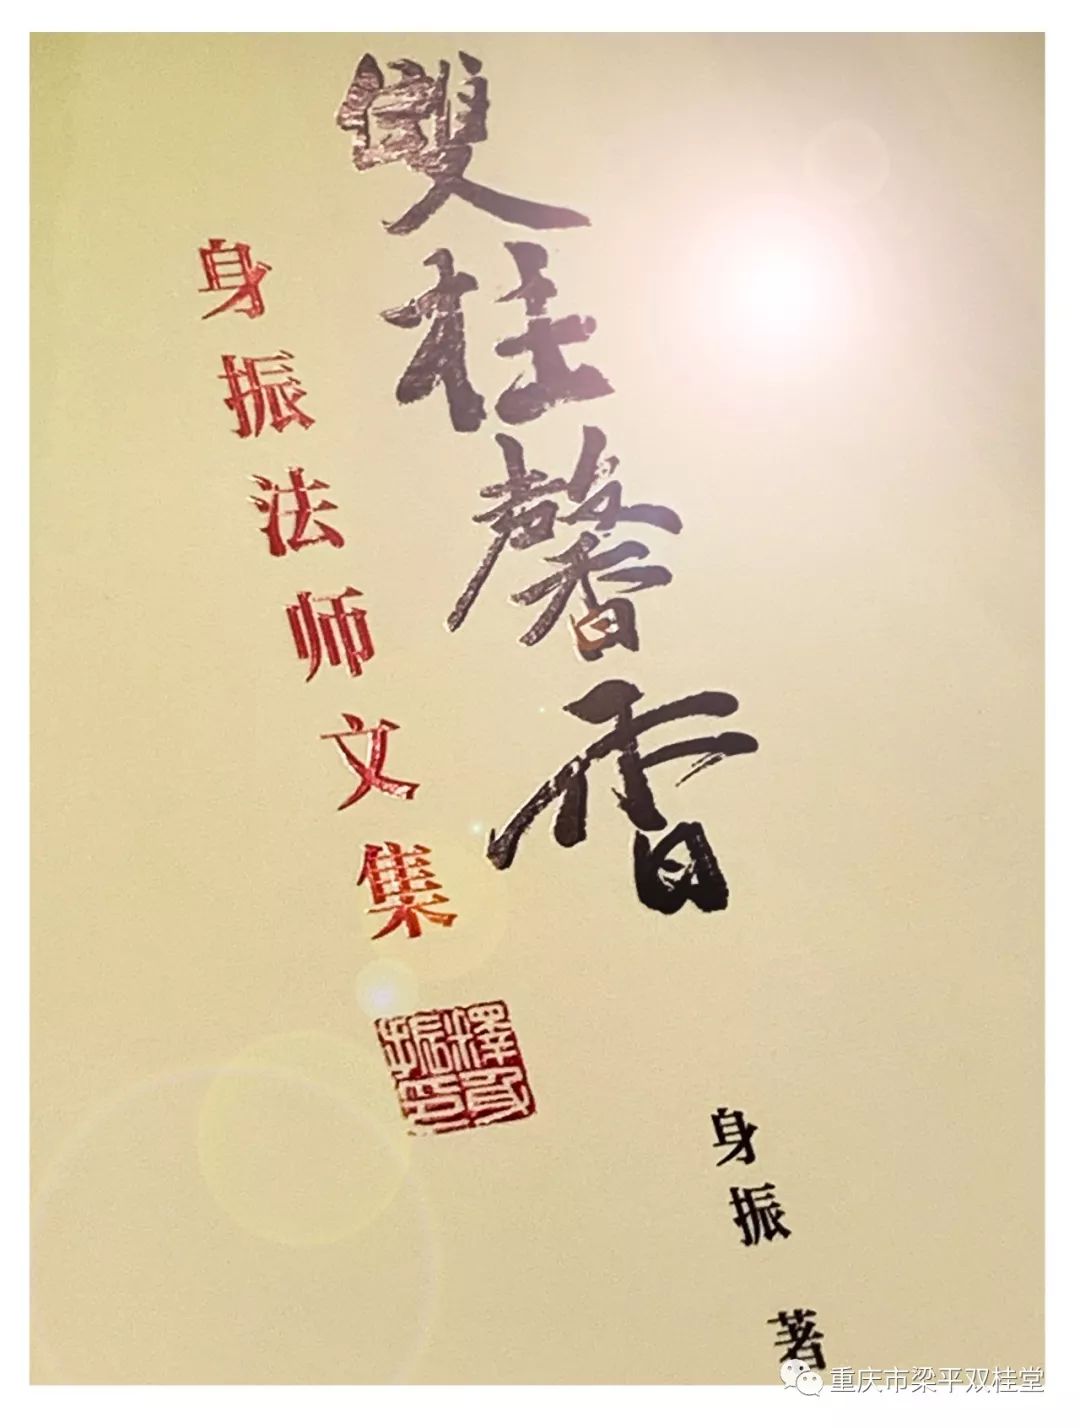 雙桂馨香
身振法师文集
釋身振印
身振 著
重庆市梁平双桂堂